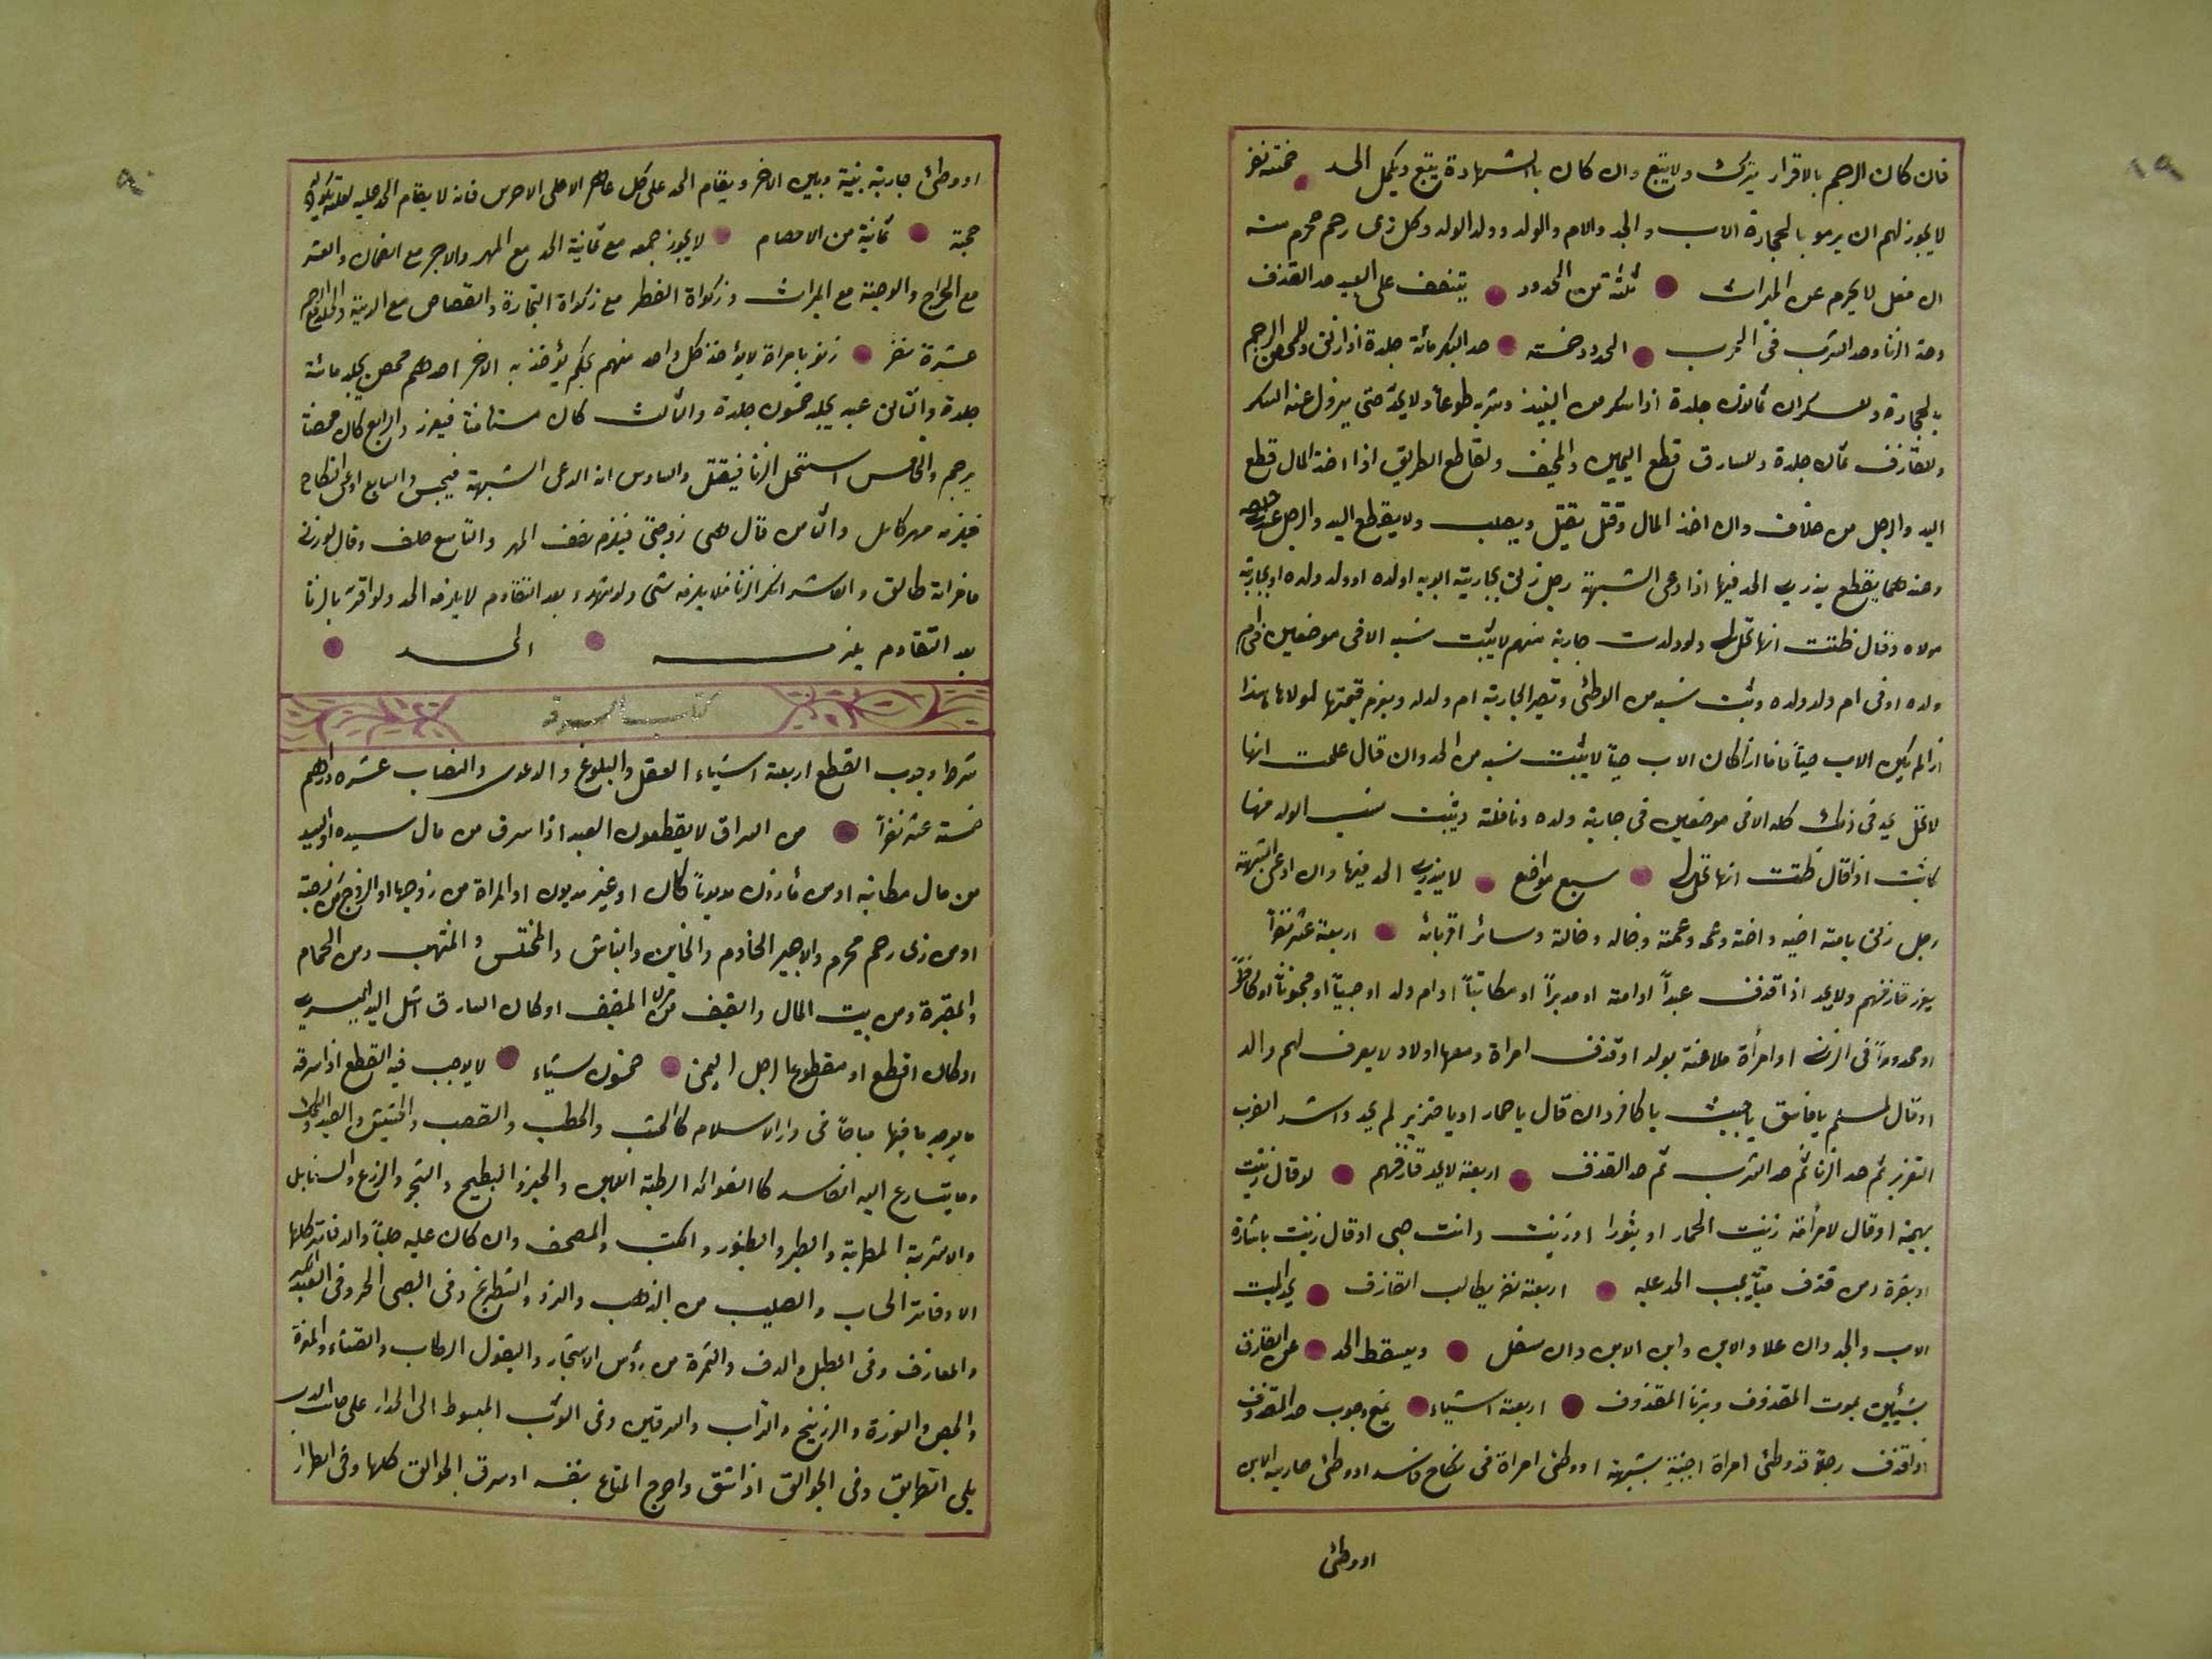 فان كان الرجم بالاقرار يترك ولا يتبع وان كان بالشهادة يتبع ويكمل الحد خمسة نفر
لا يجوز لهم ان يرمو بالحجارة الاب والجد والام والولد وولد الولد وكل ذى رحم محرم منه
ان فعل لا يحرم عن الميراث ثلثة من الحدود يتنصف على العبد حد القذف
وحد الزنا وحد الشرب فى الحدود خمسة حد البكر مائة جلدة اذا زنى وللمحصن الرجم
بالحجارة وللسكران ثمانون جلدة اذا سكر من النبيذ وشربه طوعاً ولا يحد حتى يزول عنه السكر
وللقاذف ثمان جلدة وللسارق قطع اليمين ولقاطع الطريق اذا اخذ المال قطع
اليد والرجل من خلاف وان اخذ المال وقتل يقتل ويصلب ولا يقطع اليد والرجل
وعندهما يقطع الحد فيها اذا ادعى الشبهة رجل زنى بجارية ابويه او ولده او ولد ولده او بجارية
مولاه وقال ظننت انها تحل لى ولو ولدت جارية منهم لا يثبت نسبه الا فى موضعين فى ام
ولده او فى ام ولد ولده ويثبت نسبه من الوطئ وتصير الجارية ام ولد له ويغرم قيمتها لمولاها هذا
اذا لم يكن الاب حياً فاما اذا كان الاب حياً لا يثبت نسبه من الجد وان قال علمت انها
لا تحل لى فى ذلك كله الا فى موضعين فى جارية ولده ونافلته ويثبت نسب الولد منها
كانت اذا قال ظننت انها تحل لى سبع مواضع لا يندرئ الحد فيها وان ادعى الشبهة
رجل زنى بامة اخيه واخته وعمه وعمته وخاله وخالته وسائر اقربائه اربعة عشر نفراً
يعزر قاذفهم ولا يحد اذا قذف عبداً او امة او مدبراً او مكاتباً او ام ولد او صبياً او مجنوناً او كافراً
او محدوداً فى الزنا او امرأة ملاعنة بولد او قذف امراة ومعها اولاد لا يعرف لهم والد
او قال لمسلم يا فاسق يا خبيث يا كافر وان قال يا حمار او يا خنزير لم يحد واشد الضرب
التعزير ثم حد الزنا ثم حد الشرب ثم حد القذف اربعة لا يحد قاذفهم لو قال زنيت
بهيمة او قال لامرأته زنيت الحمار او بثور او زنيت وانت صبى او قال زنيت بناقة
او بقرة ومن قذف ميتاً يجب الحد عليه اربعة نفر يطالب القاذف بحد الميت
الاب والجد وان علا والابن وابن الابن وان سفل ويسقط الحد عن القاذف
بشيئين بموت المقذوف وبزنا المقذوف اربعة اشياء يمنع وجوب حد القذف
اذا قذف رجلاً قد وطئ امراة اجنبية بشبهة او وطئ امراة فى نكاح فاسد او وطئ جارية الابن
او وطئ
او وطئ جارية بينه وبين الاخر ويقام الحد على كل الا على الاخرس فانه لا يقام الحد عليه
حجة ثمانية من الاحكام لا يجوز جمعه مع ثمانية الحد مع المهر والاجر مع الضمان والعشر
مع الخراج والوصية مع الميراث وزكواة الفطر مع زكواة التجارة والقصاص مع الدية والجلد مع الرجم
عشرة نفر زنو بامراة لا يؤاخذ كل واحد منهم بحكم يؤخذ به الاخر احدهم محصن يجلد مائة
جلدة والثانى عبد يجلد خمسون جلدة والثالث كان مستامناً فيعزر والرابع كان محصناً
يرجم والخامس استحل الزنا فيقتل والسادس انه ادعى الشبهة فيحبس والسابع ادعى النكاح
فيلزمه مهر كامل والثامن قال هى زوجتى فيلزم نصف المهر والتاسع حلف وقال لو زنى
فامراته طالق والعاشر انكر الزنا فلا يلزمه شئ ولو شهدوا بعد التقادم لا يلزمه الحد ولو اقر بالزنا
بعد التقادم يلزمه الحد
كتاب السرقة
شرط وجوب القطع اربعة اشياء العقل والبلوغ والدعوى والنصاب عشرة دراهم
خمسة عشر نفراً من السراق لا يقطعون العبد اذا سرق من مال سيده او السيد
من مال مكاتبه او من مأذون مديوناً كان او غير مديون او المراة من زوجها او الزوج من زوجته
او من ذى رحم محرم والاجير الخادم والخاين والنباش والمختلس والمنتهب ومن الحمام
والمقبرة ومن بيت المال والضيف من المضيف او كان السارق اشل اليد اليسرى
او كان اقطع او مقطوعا رجل اليمنى خمسون شياء لا يوجب فيه القطع اذا سرقه
ما يوجد مباحاً فى دار الاسلام كالخشب والحطب والقصب والحشيش والصيد والسمك
وما يتسارع اليه الفاسد كالفواكه الرطبة اللبن والخبز والبطيخ والشجر والزرع والسنابل
والاشربة المطربة والطير والطنبور والكتب والمصحف وان كان عليه حلياً والدفاتر كلها
الا دفاتر الحساب والصليب من الذهب والنرد والشطرنج وفى الصبى الحر وفى العبد الكبير
والمعازف وفى الطبل والدف والثمرة من رؤس الاشجار والبقول الرطاب والقثاء والمغرة
والجص والنورة والزرنيخ والتراب والسرقين وفى الثوب المبسوط الى الجدار على
يلى الطريق وفى الجوالق اذا شق واخرج المتاع بنفسه او سرق الجوالق كلها وفى الطرار